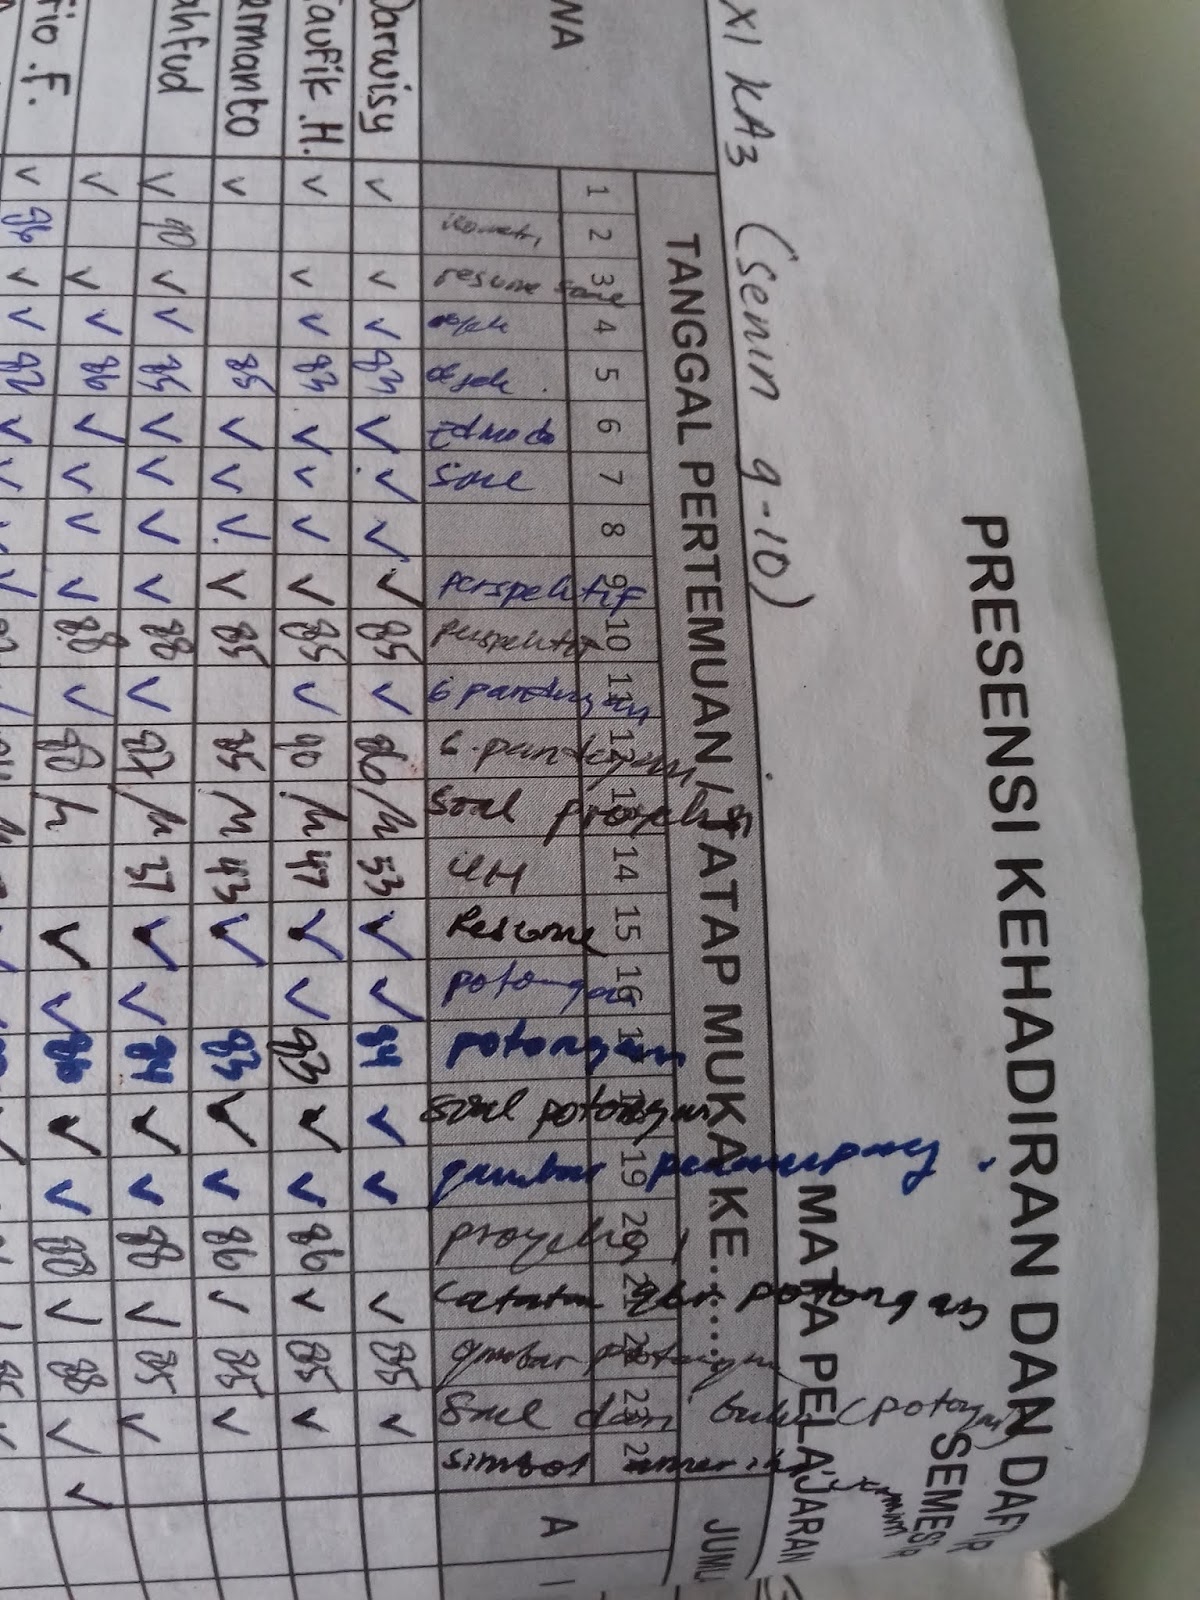 PRESENSI KEHADIRAN DAN DAFT
SEMES
MATA PELAJARAN
XI KA3 (Senin 9-10)
NA TANGGAL PERTEMUAN / TATAP MUKA KE...... JUML
1 2 3 4 5 6 7 8 9 10 11 12 14 15 16 19 20 21 23 A
resume soal
Edmodo
Soal
perspektif
perspektif
6 pandangan
6 pandangan
Soal proyeksi
UH
Resume
potongan
potongan
soal potongan
gambar penampang
proyeksi
catatan gbr potongan
gambar potongan
Soal dan buku (potongan)
simbol
Darwisy ✓ ✓ ✓ 83 ✓ ✓ ✓ ✓ 85 ✓ 86/h 53 ✓ ✓ 84 ✓ ✓ ✓ 85 ✓
aufik .H. ✓ ✓ ✓ 83 ✓ ✓ ✓ ✓ 85 ✓ 90/h 47 ✓ ✓ 83 ✓ ✓ 86 ✓ 85 ✓
ermanto ✓ 85 ✓ ✓ ✓ ✓ 85 85/h 43 ✓ 83 ✓ ✓ 86 ✓ 85 ✓
ahfud ✓ 90 ✓ ✓ 85 ✓ ✓ ✓ ✓ 88 ✓ 87/h 37 ✓ ✓ 84 ✓ ✓ 88 ✓ 85 ✓
✓ ✓ ✓ 86 ✓ ✓ ✓ ✓ 88 ✓ 90/h ✓ ✓ 86 ✓ ✓ 88 ✓ 88 ✓ ✓
rio .F. ✓ 86 ✓ ✓ 82 ✓